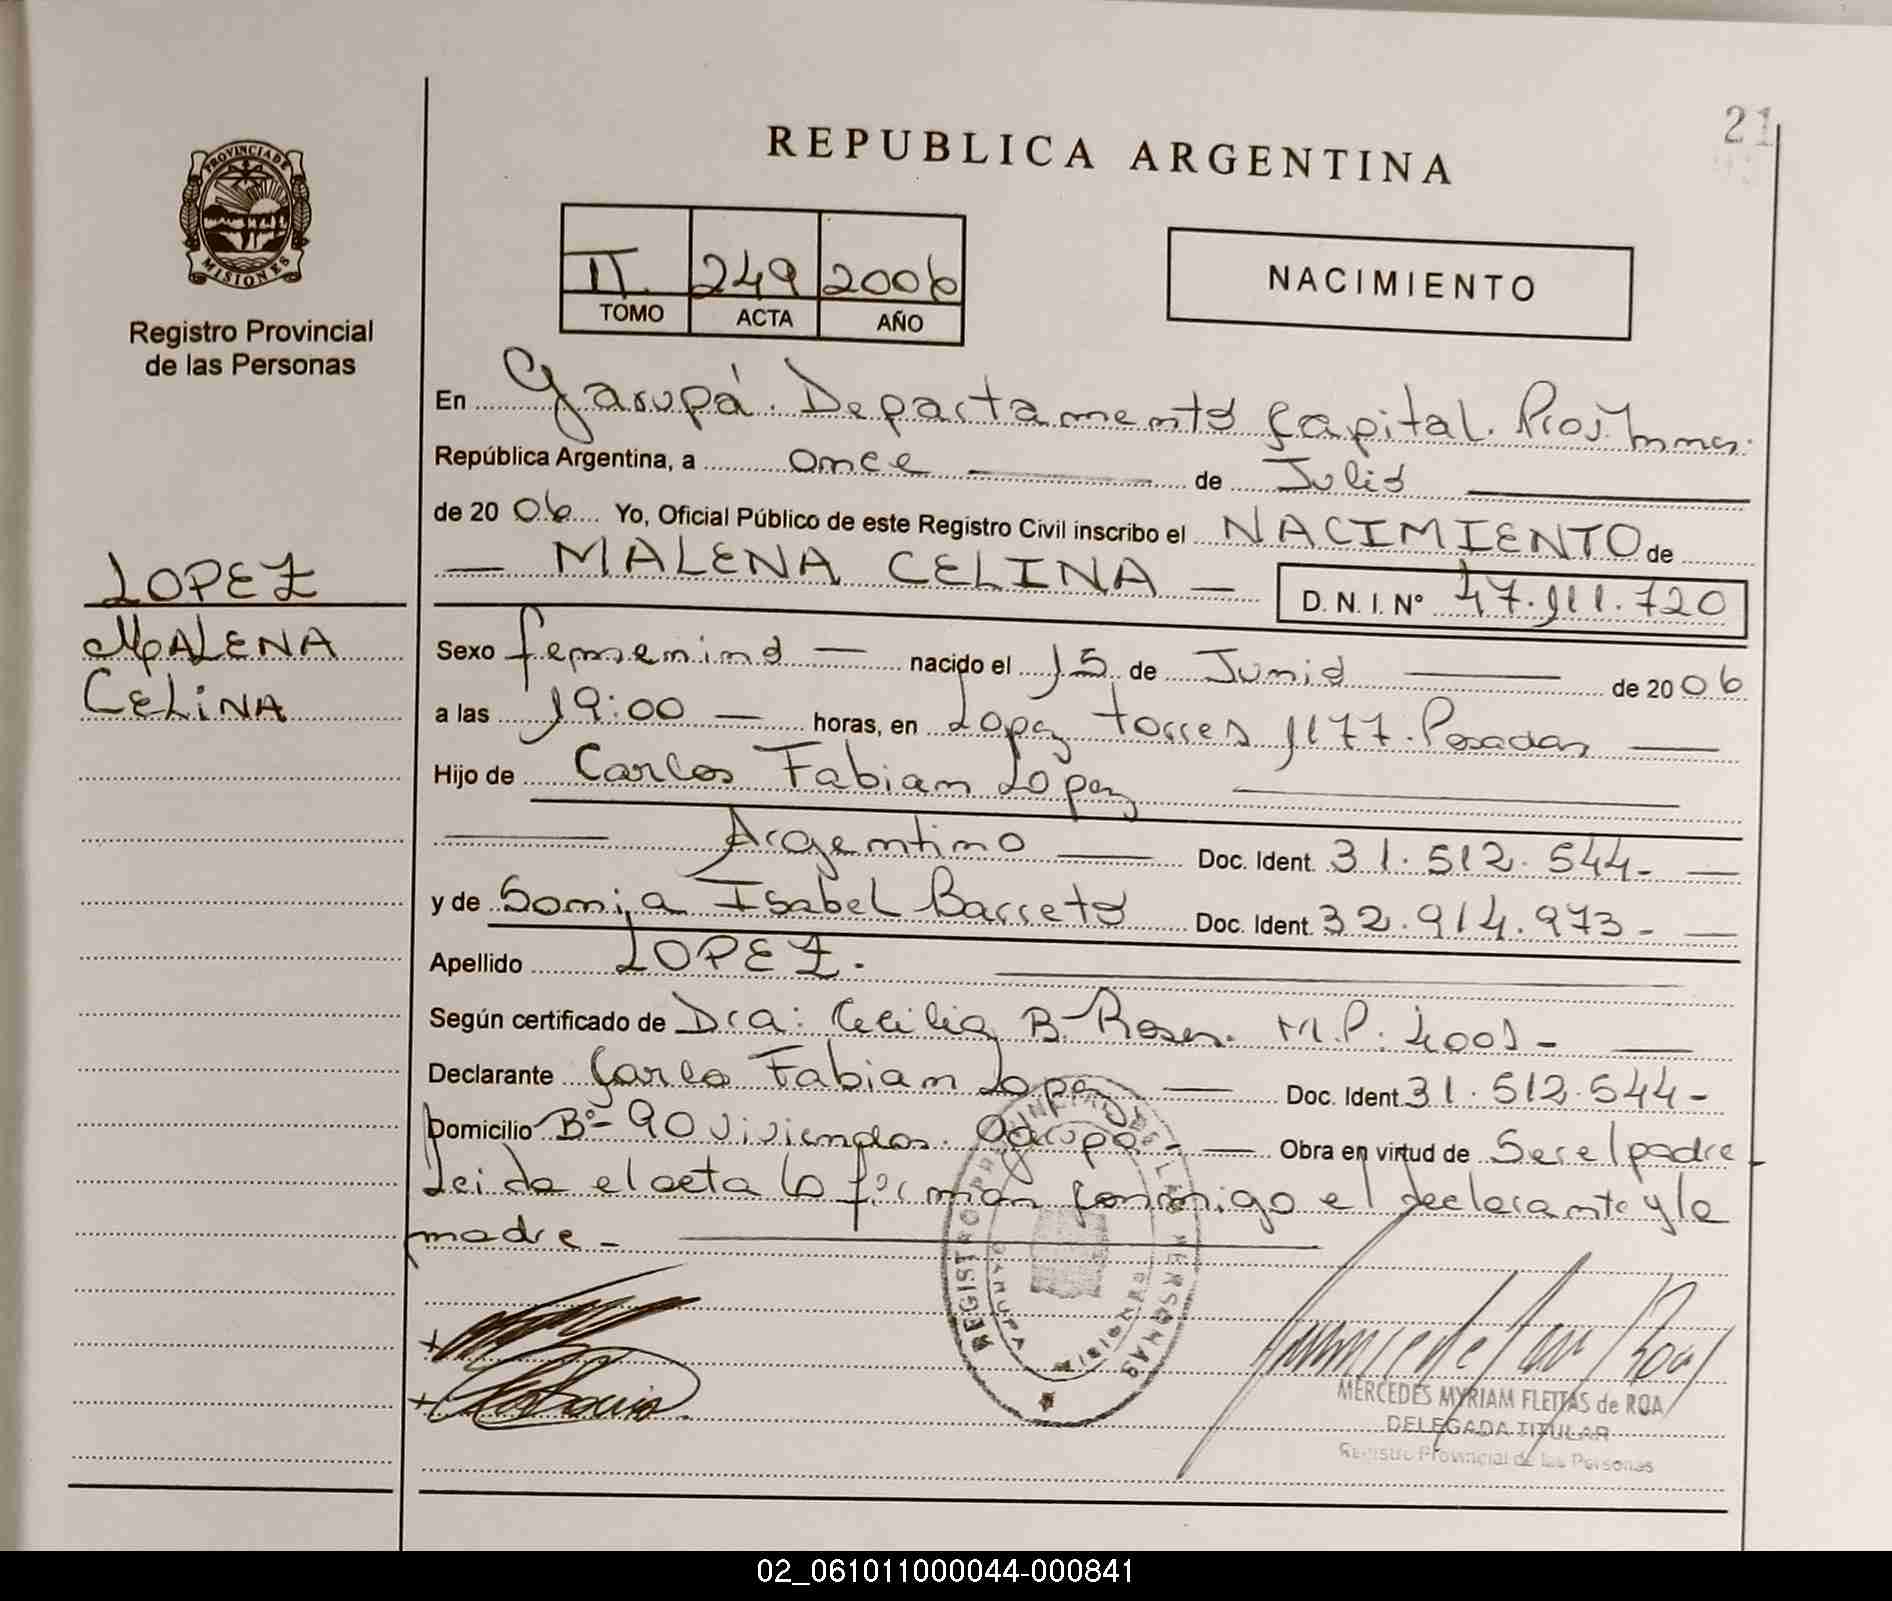 21
REPUBLICA ARGENTINA
PROVINCIA DE
MISIONES
Registro Provincial
de las Personas
II 249 2006
TOMO ACTA AÑO
NACIMIENTO
En Garupá. Departamento Capital. Prov. Mnes.
República Argentina, a once de Julio
de 2006 Yo, Oficial Público de este Registro Civil inscribo el NACIMIENTO de
MALENA CELINA D. N. I. Nº 47.911.720
LOPEZ
MALENA
CELINA
Sexo femenino nacido el 15 de Junio de 2006
a las 19:00 horas, en Lopez Torres 1177. Posadas
Hijo de Carlos Fabian Lopez
Argentino Doc. Ident. 31.512.544-
y de Sonia Isabel Barreto Doc. Ident. 32.914.973-
Apellido LOPEZ.
Según certificado de Dra: Cecilia B. Rosas. M.P. 4001-
Declarante Carlos Fabian Lopez Doc. Ident 31.512.544-
Domicilio Bº- 90 viviendas. Garupa- Obra en virtud de Ser el padre
Leida el acta lo firman conmigo el declarante y la
madre-
REGISTRO PROVINCIAL DE LAS PERSONAS
GARUPA
MISIONES
MERCEDES MYRIAM FLEITAS de ROA
DELEGADA TITULAR
Registro Provincial de las Personas
02_061011000044-000841